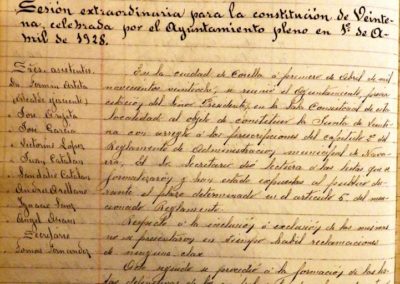 Sesión extraordinaria para la constitución de Veinte-
na, celebrada por el Ayuntamiento pleno en 1º de A-
bril de 1928.
Sres. asistentes
Dn.
(Alcalde
José
José García
Victorino López
Juan Catalán
Catalán
Arellano
Ignacio Sanz
Angel
Secretario
Fernandez
En la ciudad de Corella á primero de Abril de mil
novecientos veintiocho, se reunió el Ayuntamiento, previa
del Señor Presidente, en la Sala Consistorial de esta
localidad al objeto de constituir la Junta de Veinte-
na con arreglo á las prescripciones del capítulo 2º del
Reglamento de Administración municipal de Nava-
rra. El Sr. Secretario dió lectura á las listas que se
formalizaron y han estado expuestas al público du-
rante el plazo determinado en el artículo 5 del men-
cionado Reglamento.
Respecto á la inclusión ó exclusión de las mismas
no se presentaron en tiempo hábil reclamaciones
de ninguna clase.
Acto seguido se procedió á la formación de las lis-
tas